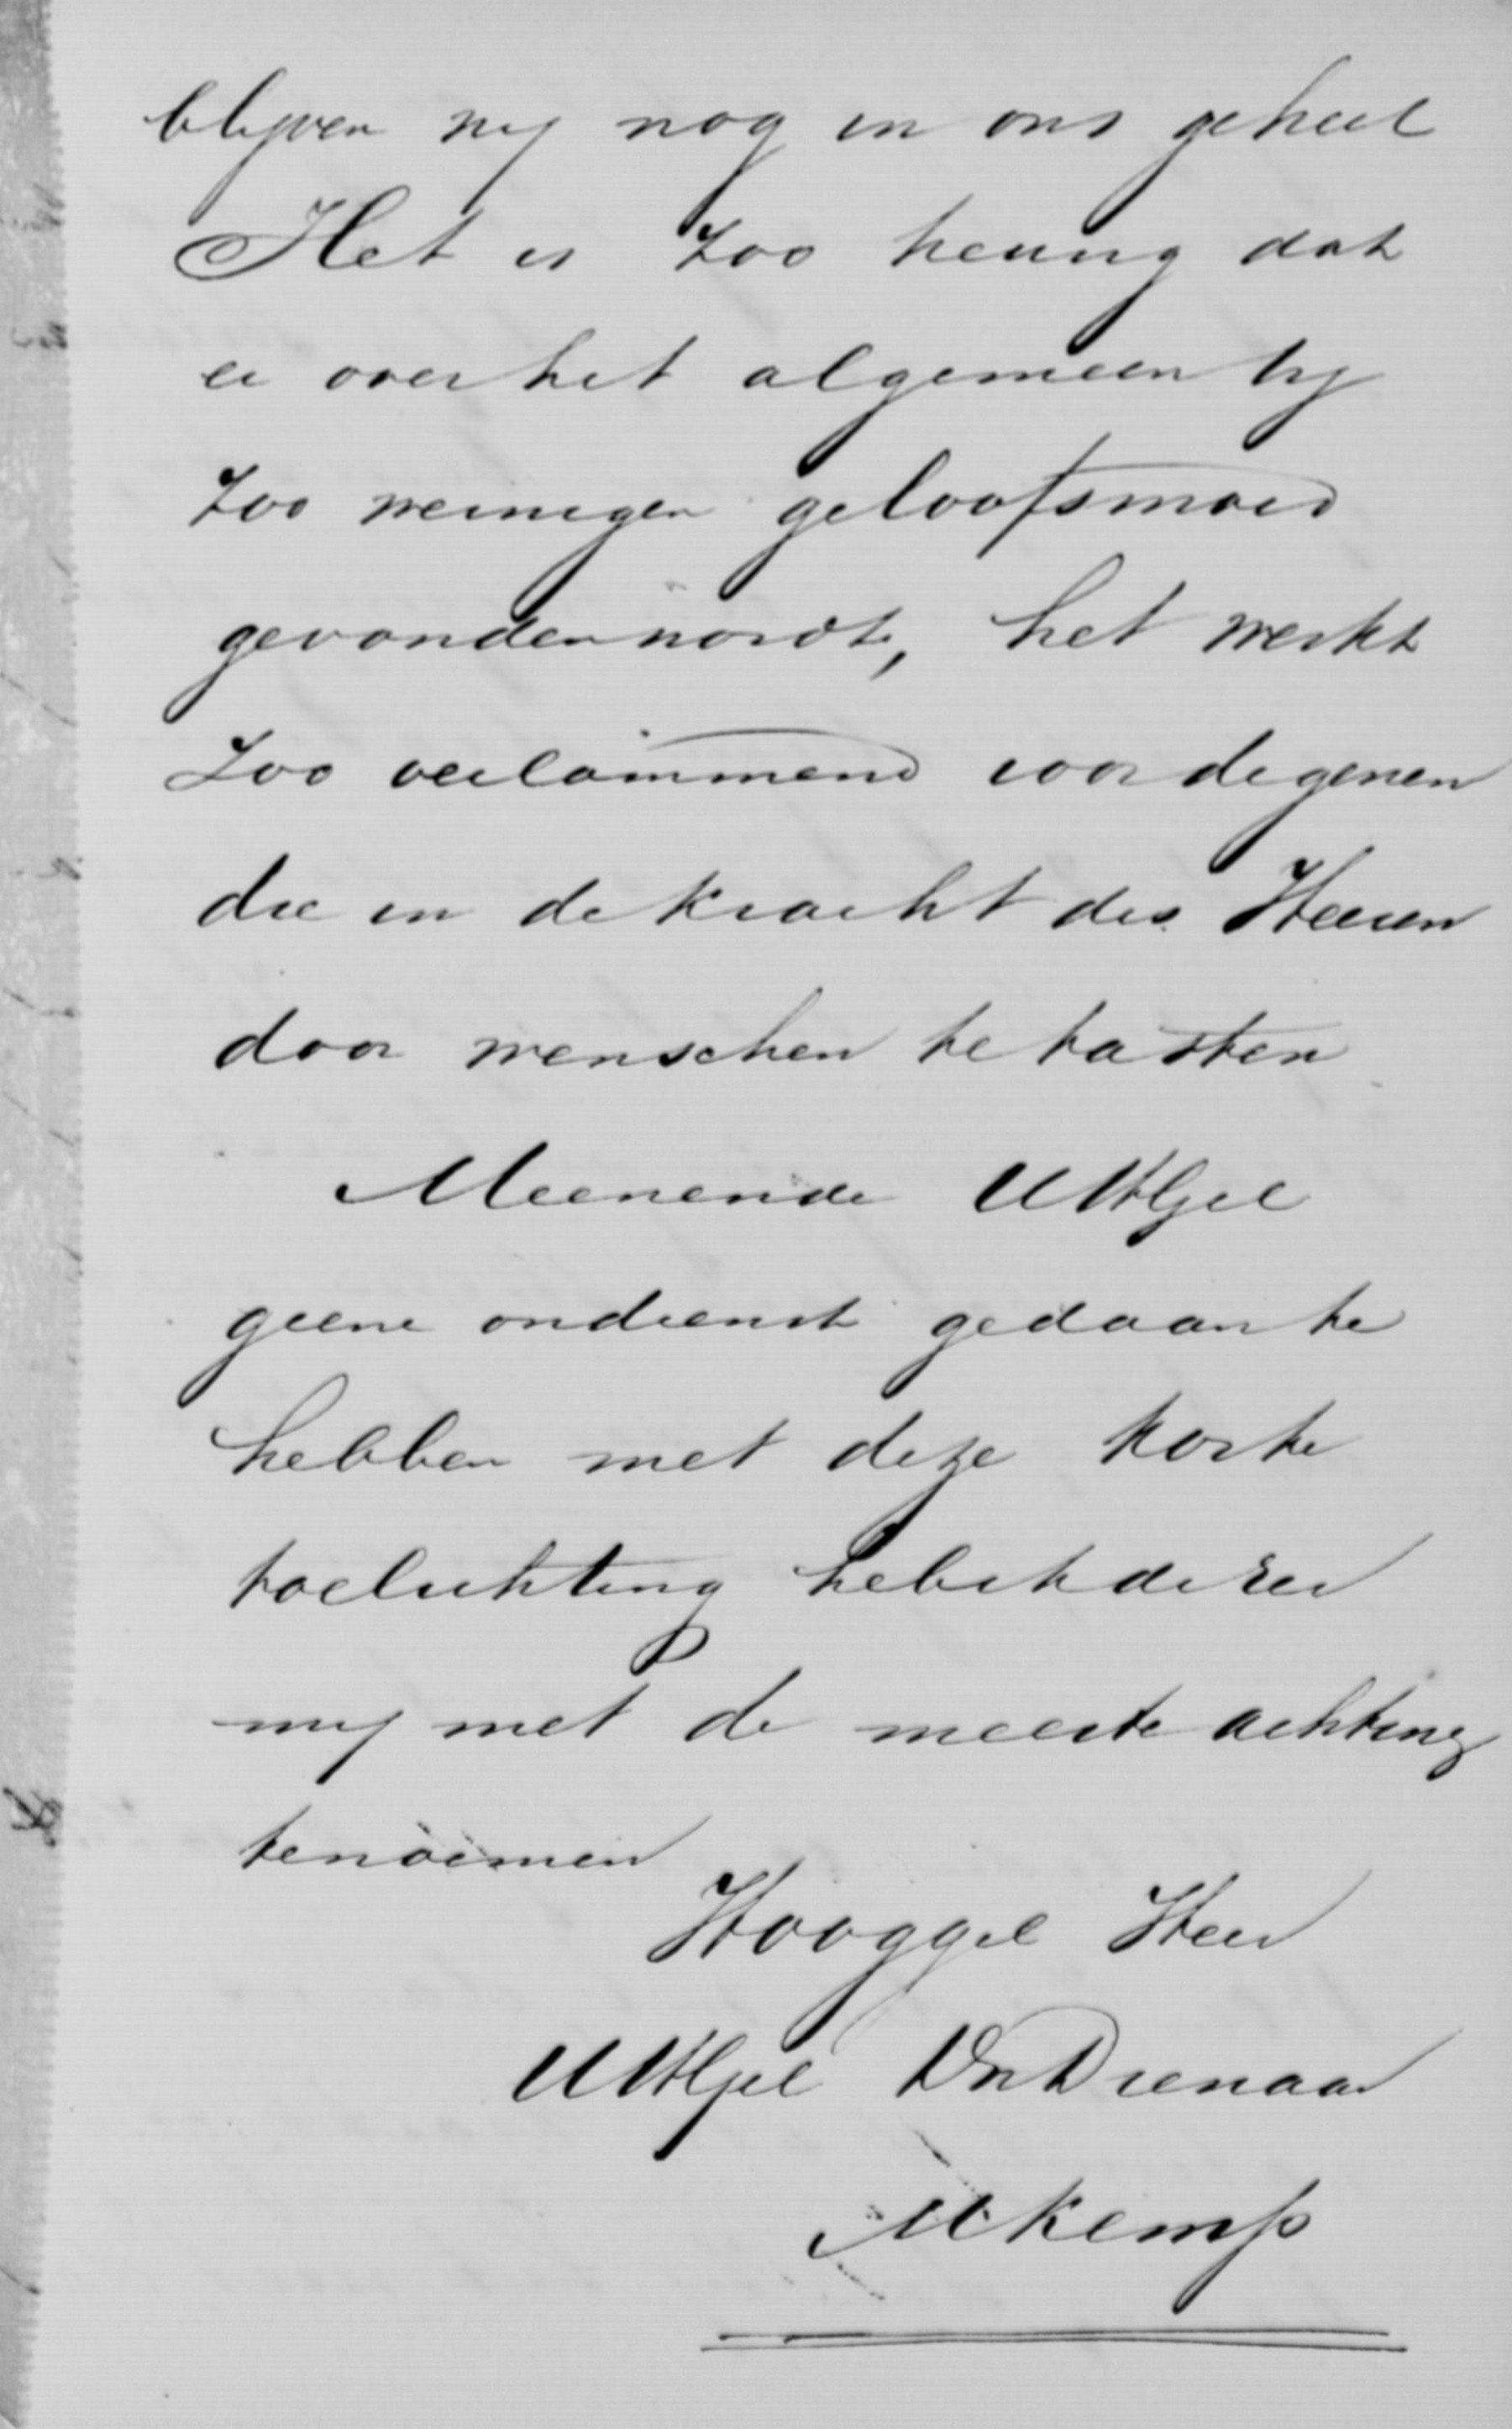 blijven wij nog in ons geheel
Het is zoo treurig dat
er over het algemeen bij
zoo weinigen geloofsmoed
gevonden wordt, het werkt
zoo verlammend voor degenen
die in de kracht des Heeren
door wenschen te tasten
Meenende UWHgel
geene ondienst gedaan te
hebben met deze korte
toelichting heb ik de eer
mij met de meeste achting
te noemen
Hooggel Heer
UWHgel Dw Dienaar
MKemp